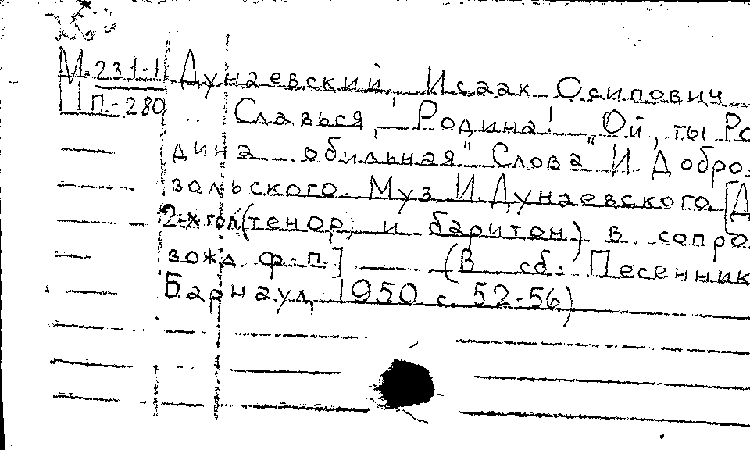 М-231-II Дунаевский, Исаак Осипович
П-280 Славься, Родина! "Ой, ты Ро
дина обильная" Слова И. Добро-
вольского. Муз. И. Дунаевского. [Д
2-х гол. (тенор и баритон) в сопро
вожд. ф.-п.] (В сб.: Песенник
Барнаул, 1950 с. 52-56)